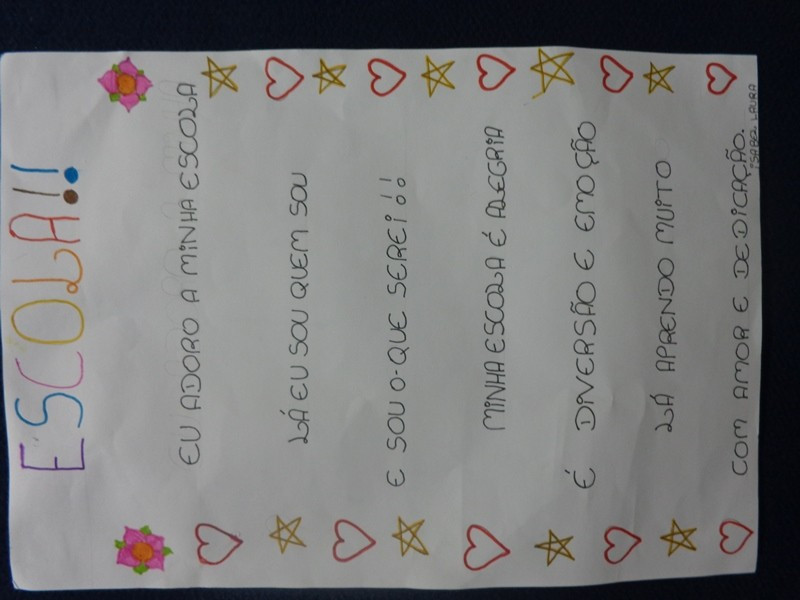 ESCOLA!!
EU ADORO A MINHA ESCOLA
LÁ EU SOU QUEM SOU
E SOU O-QUE SEREI!!
MINHA ESCOLA É ALEGRIA
É DIVERSÃO E EMOÇÃO
LÁ APRENDO MUITO
COM AMOR E DEDICAÇÃO.
ISABEL LAURA